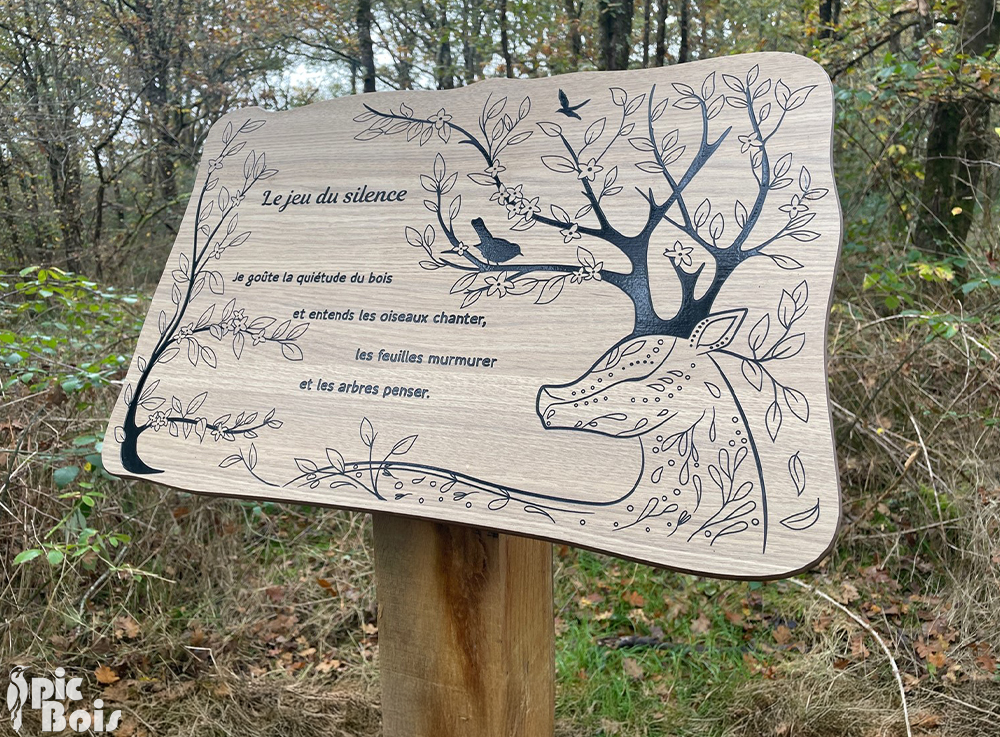 Le jeu du silence
Je goûte la quiétude du bois
et entends les oiseaux chanter,
les feuilles murmurer
et les arbres penser.
pic
Bois